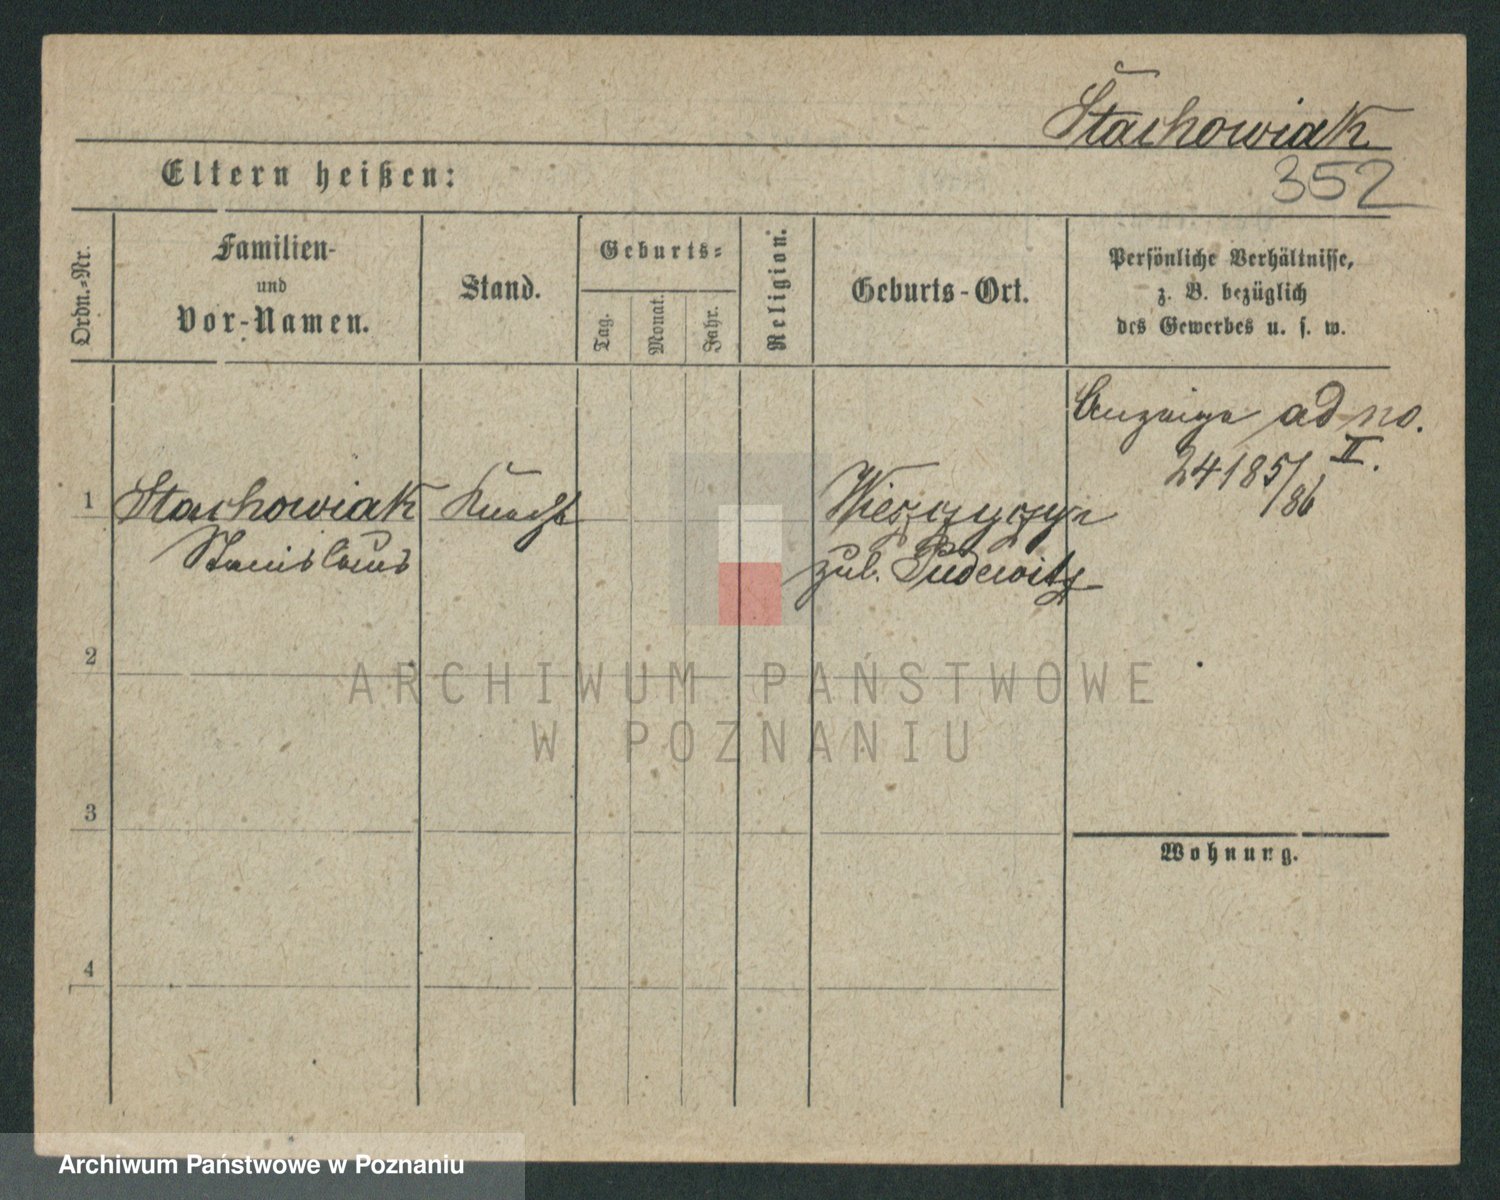 Stachowiak
352
Eltern heißen:
Ordn.-Nr.
Familien-
und
Vor-Namen.
Stand.
Geburts-
Tag.
Monat.
Jahr.
Religion.
Geburts-Ort.
Persönliche Verhältnisse,
z. B. bezüglich
des Gewerbes u. s. w.
Anzeige ad no.
24185/86 II.
1
Stachowiak
Stanislaus
Knecht
zul. Pudewitz
2
3
4
Wohnung.
ARCHIWUM PAŃSTWOWE
W POZNANIU
Archiwum Państwowe w Poznaniu